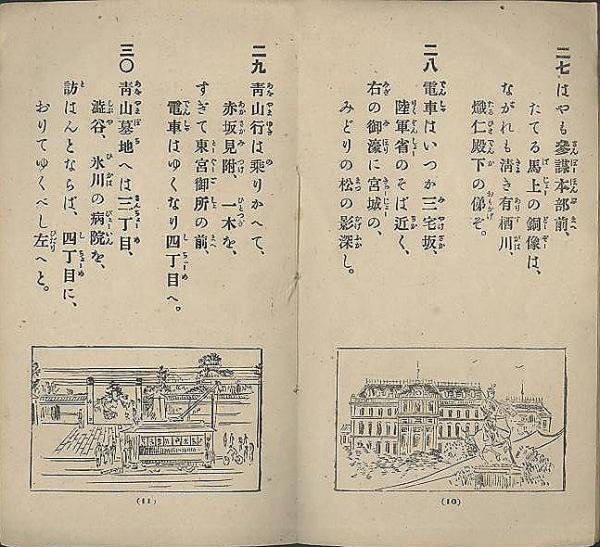 二七 はやも參謀本部前、
たてる馬上の銅像は、
ながれも淸き有栖川、
熾仁殿下の俤ぞ。
二八 電車はいつか三宅坂、
陸軍省のそば近く、
右の御濠に宮城の、
みどりの松の影深し。
(10)
二九 靑山行は乘りかへて、
赤坂見附、一木を、
すぎて東宮御所の前、
電車はゆくなり四丁目へ。
三〇 靑山墓地へは三丁目、
澁谷、氷川の病院を、
訪はんとならば、四丁目に、
おりてゆくべし左へと。
(11)